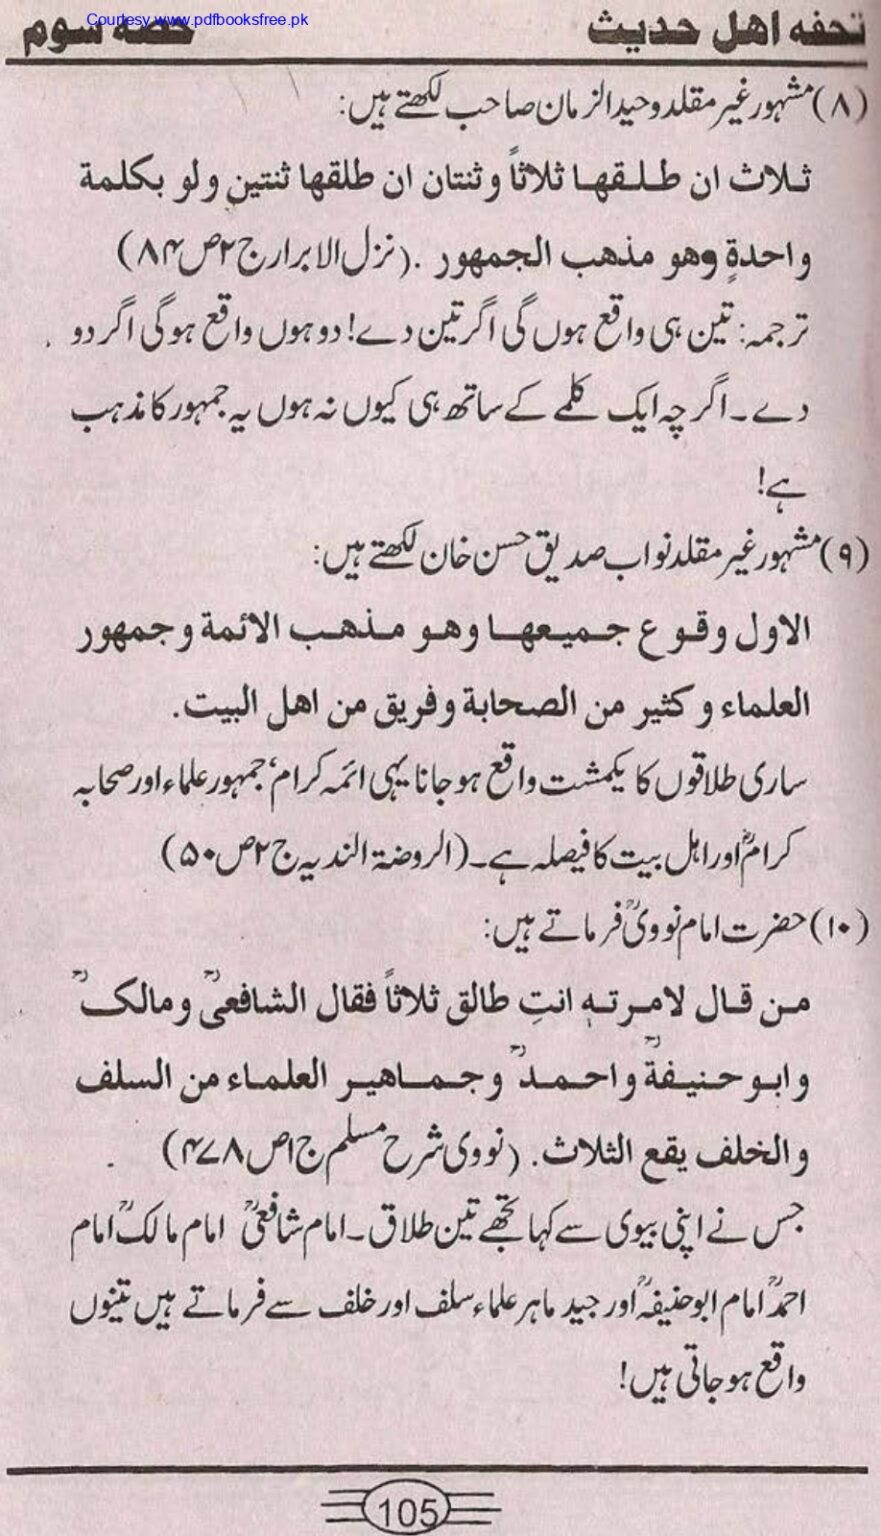 Courtesy www.pdfbooksfree.pk
تحفه اهل حدیث حصه سوم
(۸) مشہور غیر مقلد وحید الزمان صاحب لکھتے ہیں:
ثلاث ان طلقها ثلاثاً وثنتان ان طلقها ثنتين ولو بكلمة
واحدةٍ وهو مذهب الجمهور. (نزل الابرار ج ۲ ص ۸۴)
ترجمہ: تین ہی واقع ہوں گی اگر تین دے! دو ہوں واقع ہوگی اگر دو
دے۔ اگرچہ ایک کلمے کے ساتھ ہی کیوں نہ ہوں یہ جمہور کا مذہب
ہے!
(۹) مشہور غیر مقلد نواب صدیق حسن خان لکھتے ہیں:
الاول وقوع جميعها وهو مذهب الائمة وجمهور
العلماء و كثير من الصحابة وفريق من اهل البيت.
ساری طلاقوں کا یکمشت واقع ہو جانا یہی ائمہ کرام، جمہور علماء اور صحابہ
کرامؓ اور اہل بیت کا فیصلہ ہے۔ (الروضۃ الندیہ ج ۲ ص ۵۰)
(۱۰) حضرت امام نوویؒ فرماتے ہیں:
من قال لامرته انتِ طالق ثلاثاً فقال الشافعیؒ ومالکؒ
وابو حنیفةؒ واحمدؒ وجماهير العلماء من السلف
والخلف يقع الثلاث. (نووی شرح مسلم ج ۱ ص ۴۷۸)
جس نے اپنی بیوی سے کہا تجھے تین طلاق۔ امام شافعیؒ امام مالکؒ امام
احمدؒ امام ابوحنیفہؒ اور جید ماہر علماء سلف اور خلف سے فرماتے ہیں تینوں
واقع ہو جاتی ہیں!
105